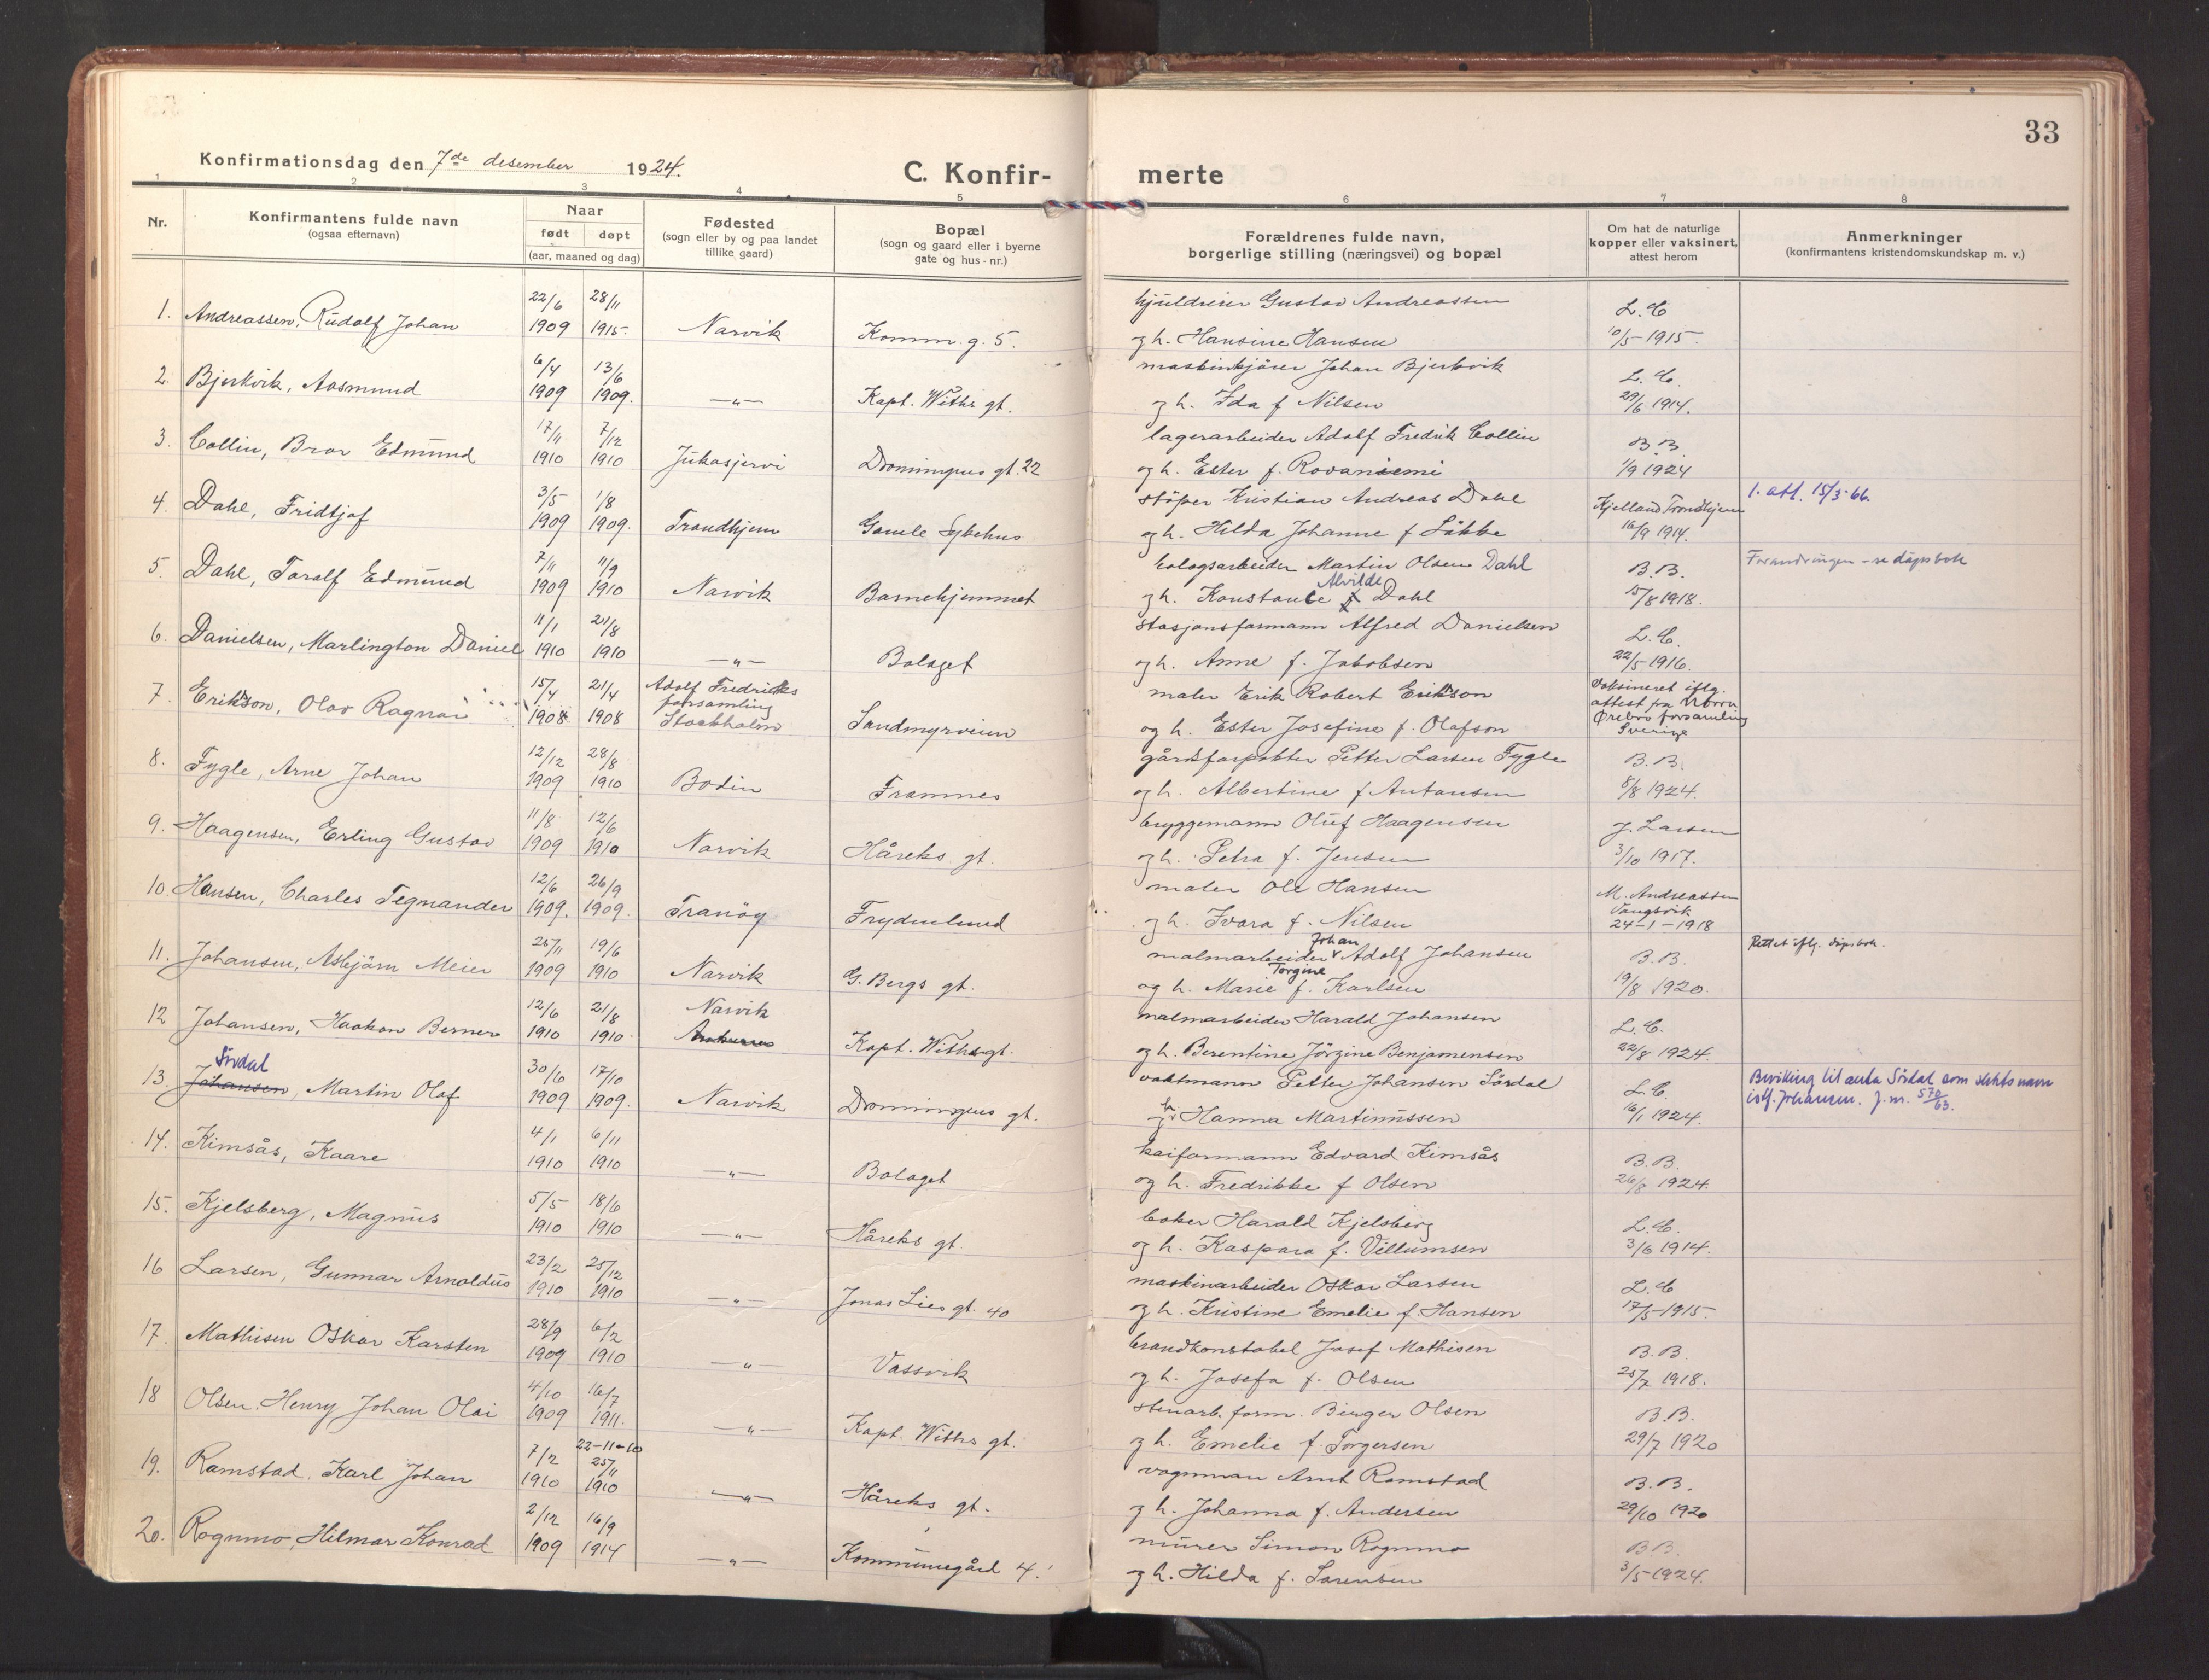 33
Konfirmationsdag den 7de desember 1924.
C. Konfir- merte
1 2 3 4 5 6 7 8
Nr.
Konfirmantens fulde navn
(ogsaa efternavn)
Naar
født døpt
(aar, maaned og dag)
Fødested
(sogn eller by og paa landet
tillike gaard)
Bopæl
(sogn og gaard eller i byerne
gate og hus-nr.)
Forældrenes fulde navn,
borgerlige stilling (næringsvei) og bopæl
Om hat de naturlige
kopper eller vaksinert,
attest herom
Anmerkninger
(konfirmantens kristendomskundskap m. v.)
22/6 28/11 hjuldreier Gustav Andreassen L. C
1. Andreassen, Rudolf Johan 1909 1915. Narvik Komm. g. 5. og h. Hansine Hansen 10/5-1915.
6/4 13/6 maskinkjører Johan Bjerkvik L. C.
2. Bjerkvik, Aasmund 1909 1909. —„— Kapt. Withs gt. og h. Ida f Nilsen 29/6 1914.
17/11 7/12 lagerarbeider Adolf Fredrik Collin B.B.
3. Collin, Bror Edmund 1910 1910 Jukasjervi Dronningens gt. 22 og h. Ester f. Rovaniemi 1/9 1924
3/5 1/8 støper Kristian Andreas Dahl Kjelland Trondhjem 1. att. 15/3-66.
4. Dahl, Fridtjof 1909 1909. Trondhjem Gamle Sykehus og h. Hilda Johanne f Løkke 16/9 1914.
7/11 11/9 bologsarbeider Martin Olsen Dahl B.B. Forandringen - se dåpsbok
5. Dahl, Toralf Edmund 1909 1910 Narvik Barnehjemmet og h. Konstanse Alvilde f Dahl 15/8 1918.
11/1 21/8 stasjonsformann Alfred Danielsen L. C.
6. Danielsen, Marlington Daniel 1910 1910 —„— Bolaget og h. Anne f. Jakobsen 22/5-1916.
15/4 21/4 Adolf Fredriks forsamling Stockholm maler Erik Robert Erikson Vaksineret iflg. attest fra Norra Ørebro forsamling Sverige
7. Erikson, Olov Ragnar 1908 1908 Sandmyrveien og h. Ester Josefine f. Olafson
12/12 28/8 gårdsforpakter Petter Larsen Fygle B.B.
8. Fygle, Arne Johan 1909 1910 Bodin Framnes og h. Albertine f Antonsen 8/8 1924.
11/8 12/6 bryggemann Oluf Haagensen J. Larsen
9. Haagensen, Erling Gustav 1909 1910 Narvik Håreks gt. og h. Petra f. Jensen 3/10 1917.
12/6 26/9 maler Ole Hansen M. Andreassen Vangsvik
10. Hansen, Charles Tegnander 1909. 1909. Tranøy Frydenlund og h. Ivara f. Nilsen 24-1-1918
25/11 19/6 malmarbeider Johan Adolf Johansen B.B. Rettet iflg. dåpsbok.
11. Johansen, Asbjørn Meier 1909 1910 Narvik G. Bergs gt. og h. Marie Torgine f. Karlsen 19/8 1920.
12/6 21/8 Narvik malmarbeider Harald Johansen L. C.
12 Johansen, Haakon Berner 1910 1910 Kapt. Withs gt. og h. Berentine Jørgine Benjamensen 22/8 1924.
Sørdal 30/6 17/10 vaktmann Petter Johansen Sørdal L. C. Beviling til anta Sørdal som slektsnavn
13. Johansen, Martin Olaf 1909 1909. Narvik Dronningens gt. Hanna Martinussen 16/1 1924. istf. Johansen. J. nr. 570/63.
4/1 6/11 kaiformann Edvard Kimsås B.B.
14. Kimsås, Kaare 1910 1910 —„— Bolaget og h. Fredrikke f Olsen 26/8 1924.
5/5 18/6 baker Harald Kjelsberg L. C.
15. Kjelsberg, Magnus 1910 1910 —„— Håreks gt. og h. Kaspara f. Villumsen 3/6 1914.
23/2 25/12 maskinarbeider Oskar Larsen L. C
16 Larsen, Gunnar Arnoldus 1910 1910 —„— Jonas Lies gt. 40 og h. Kristine Emelie f. Hansen 17/5-1915.
28/9 6/2 brandkonstabel Josef Mathisen B.B.
17. Mathisen Oskar Karsten 1909 1910 —„— Vassvik og h. Josefa f. Olsen 25/7 1918.
4/10 16/7 stenarb. form. Birger Olsen B.B.
18 Olsen, Henry Johan Olai 1909 1911. —„— Kapt. Withs gt. og h. Emelie f. Torgersen 29/7 1920
7/2 22-11-10 25/11 vognman Arnt Ramstad B.B.
19. Ramstad, Karl Johan 1910 1910 —„— Håreks gt. og h. Johanna f. Andersen 29/10 1920
2/12 16/9 murer Simon Rognmo B.B.
20. Rognmo, Hilmar Konrad 1909 1914 —„— Kommunegård 4. og h. Hilda f. Sørensen 3/5-1924.